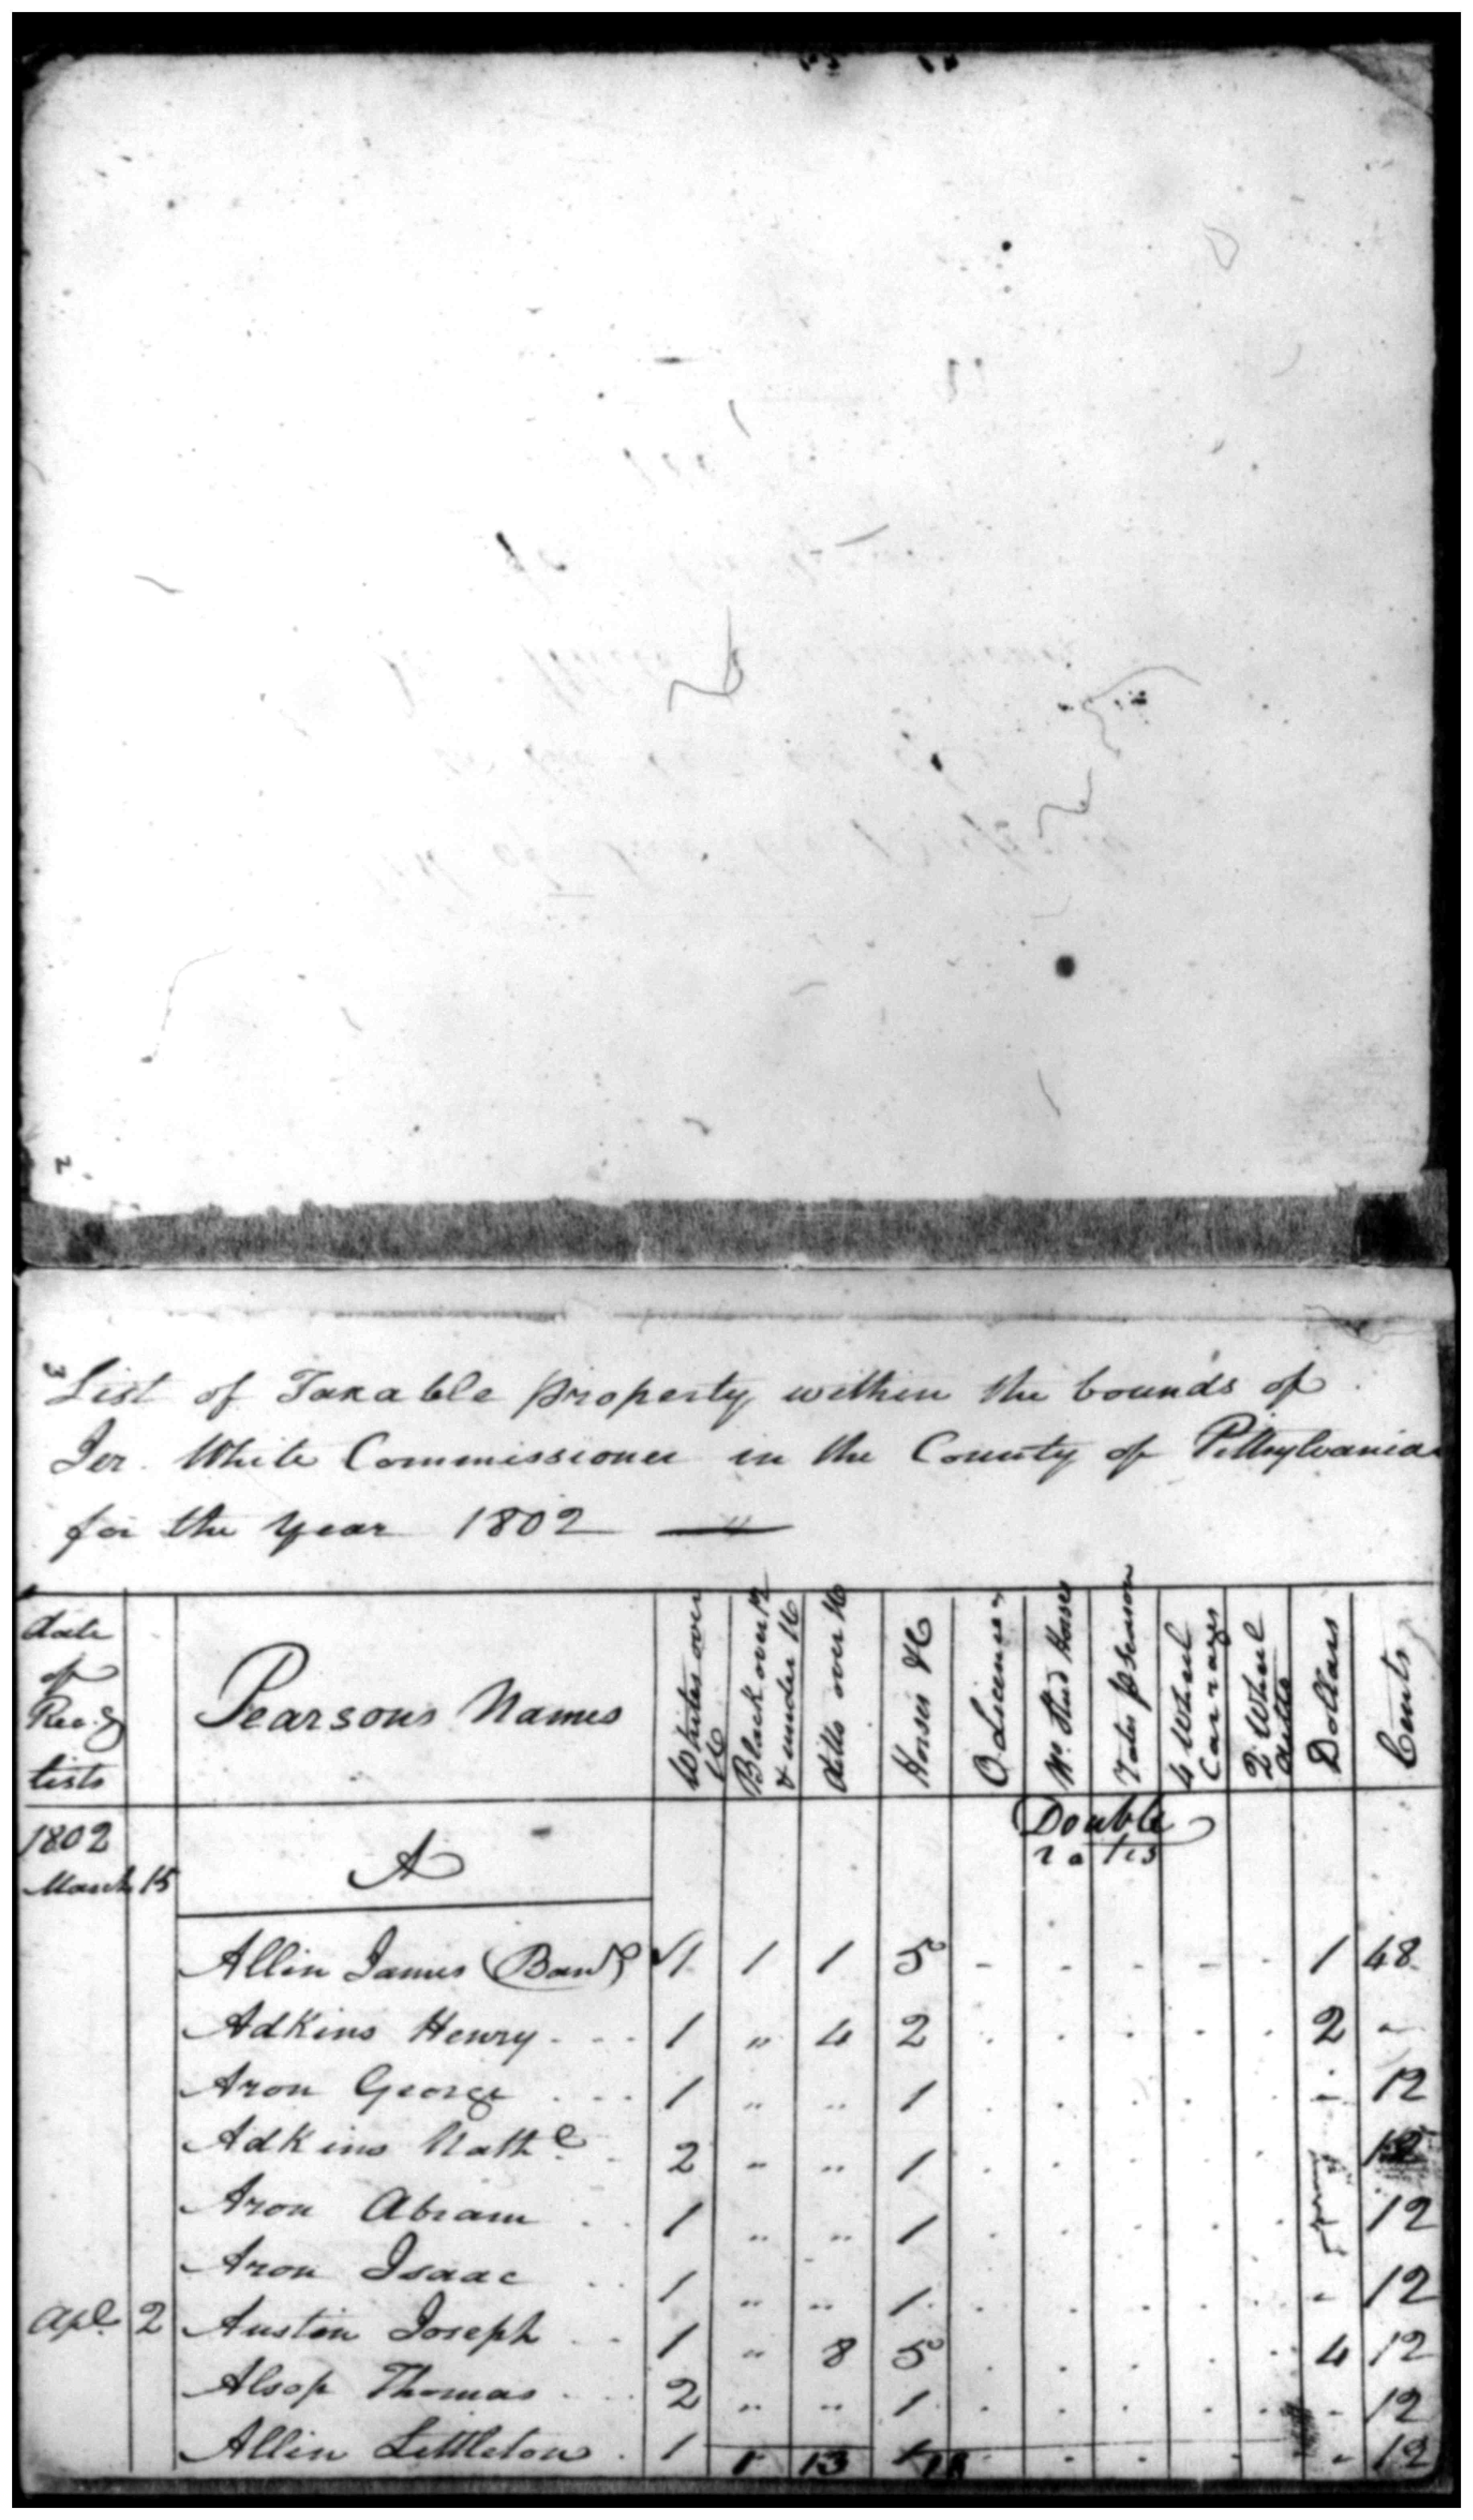 2
3
List of Taxable property within the bounds of
Jer. White Commissioner in the County of Pittsylvania
for the year 1802
date of Rec.g lists
Pearsons Names
Whites over 16
Black over 12 & under 16
ditto over 16
Horses &C
O. Licenses
No. Stud Horses
Rates pr Season
4 Wheel Carrages
2 Wheel ditto
Dollars
Cents
1802
March 15
A
Double rates
Allin James 1 1 1 5 - - - - - 1 48
Adkins Henry - - - 1 " 4 2 . . . . . 2 -
Aron George . . . 1 " " 1 . . . . . - 12
Adkins Nathl. . 2 " " 1 . . . . 12
Aron Abram . . 1 " " 1 . . . . . 12
Aron Isaac . . 1 " " 1 . . . . . - 12
Apl. 2 Austin Joseph . . 1 " 8 5 . . . . . 4 12
Alsop Thomas . . . 2 " " 1 . . . . . - 12
Allin Littleton . 1 1 . . . . - 12
1 13 18